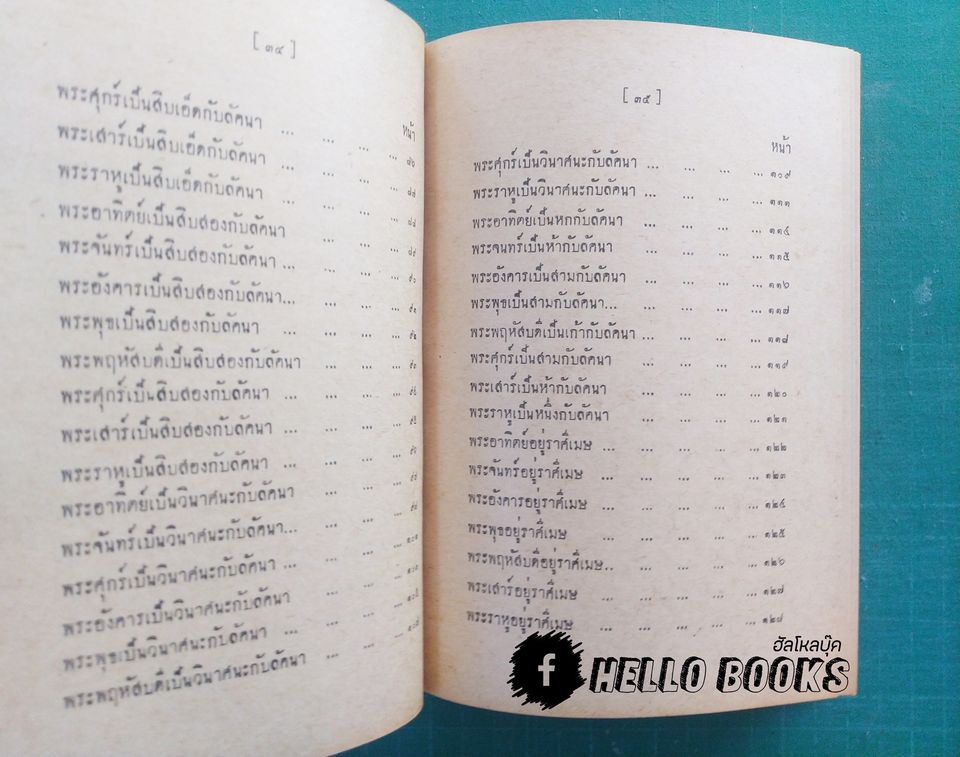 [ ๓๔ ]
หน้า
พระศุกร์เป็นสิบเอ็ดกับลัคนา ... ... ... ๘๖
พระเสาร์เป็นสิบเอ็ดกับลัคนา ... ... ... ๘๗
พระราหูเป็นสิบเอ็ดกับลัคนา ... ... ... ๘๘
พระอาทิตย์เป็นสิบสองกับลัคนา ... ... ๘๙
พระจันทร์เป็นสิบสองกับลัคนา ... ... ... ๙๐
พระอังคารเป็นสิบสองกับลัคนา... ... ... ๙๑
พระพุธเป็นสิบสองกับลัคนา ... ... ... ๙๒
พระพฤหัสบดีเป็นสิบสองกับลัคนา ... ... ๙๓
พระศุกร์เป็นสิบสองกับลัคนา ... ... ...
พระเสาร์เป็นสิบสองกับลัคนา ... ... ... ๙๕
พระราหูเป็นสิบสองกับลัคนา ... ... ...
พระอาทิตย์เป็นวินาศนะกับลัคนา ... ...
พระจันทร์เป็นวินาศนะกับลัคนา... ... ...
พระศุกร์เป็นวินาศนะกับลัคนา ... ... ...
พระอังคารเป็นวินาศนะกับลัคนา ... ...
พระพุธเป็นวินาศนะกับลัคนา ... ... ...
พระพฤหัสบดีเป็นวินาศนะกับลัคนา ... ...
[ ๓๕ ]
หน้า
พระศุกร์เป็นวินาศนะกับลัคนา ... ... ... ๑๐๙
พระราหูเป็นวินาศนะกับลัคนา ... ... ... ๑๑๑
พระอาทิตย์เป็นหกกับลัคนา ... ... ... ๑๑๔
พระจันทร์เป็นห้ากับลัคนา ... ... ... ๑๑๕
พระอังคารเป็นสามกับลัคนา ... ... ... ๑๑๖
พระพุธเป็นสามกับลัคนา... ... ... ... ๑๑๗
พระพฤหัสบดีเป็นเก้ากับลัคนา ... ... ... ๑๑๘
พระศุกร์เป็นสามกับลัคนา ... ... ... ๑๑๙
พระเสาร์เป็นห้ากับลัคนา ... ... ... ๑๒๐
พระราหูเป็นหนึ่งกับลัคนา ... ... ... ๑๒๑
พระอาทิตย์อยู่ราศีเมษ ... ... ... ... ๑๒๒
พระจันทร์อยู่ราศีเมษ ... ... ... ... ๑๒๓
พระอังคารอยู่ราศีเมษ ... ... ... ... ๑๒๔
พระพุธอยู่ราศีเมษ ... ... ... ... ๑๒๕
พระพฤหัสบดีอยู่ราศีเมษ.. ... ... ... ๑๒๖
พระเสาร์อยู่ราศีเมษ ... ... ... ... ๑๒๗
พระราหูอยู่ราศีเมษ ... ... ... ... ๑๒๘
ฮัลโหลบุ๊ค
f HELLO BOOKS